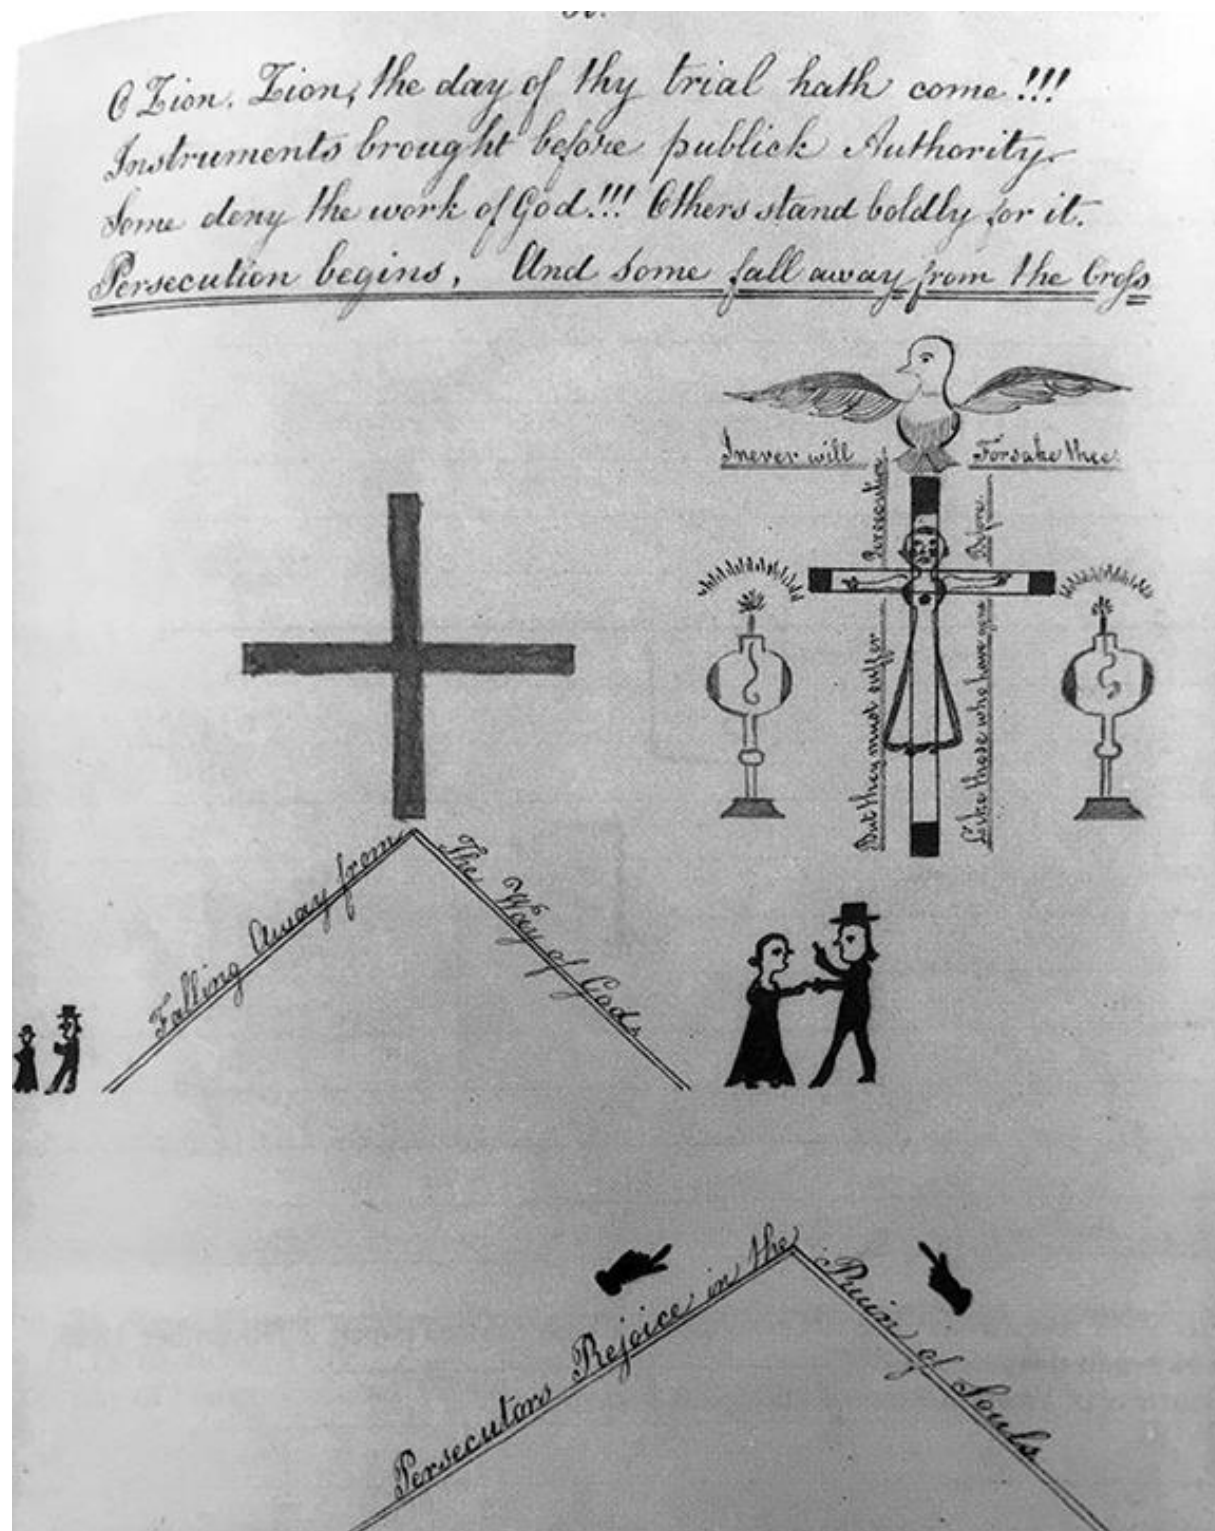 O Zion, Zion, the day of thy trial hath come!!!
Instruments brought before publick Authority.
Some deny the work of God!!! Others stand boldly for it.
Persecution begins, And some fall away from the Cross
I never will Forsake thee
But they must suffer Persecution
Like those who have gone Before
Falling Away from The Way of God.
Persecutors Rejoice in the Ruin of Souls